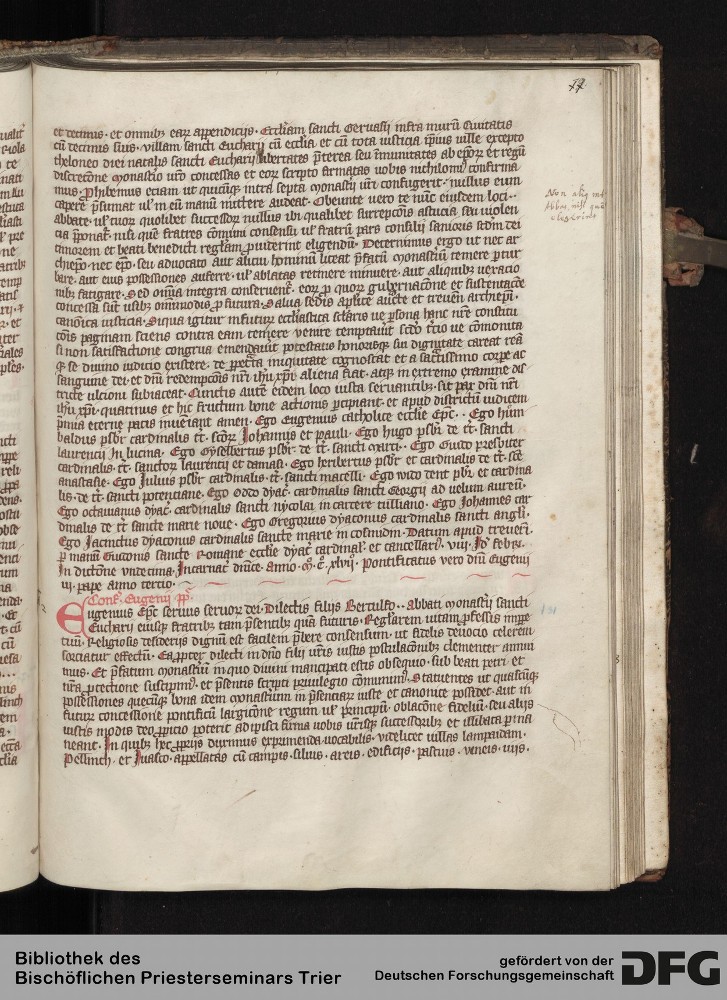 et decimis · et omnibꝫ earꝝ appendicijs · Eccl̄iam sancti Geruasij infra murū Ciuitatis
cū decimis suis · villam sancti Eucharij cū eccl̄ia et cū tota iusticia ip̄ius ville excepto
theloneo diei natalis sancti Eucharij libertates p̄terea seu īmunitates ab ep̄oꝝ et regū
discretōne monast̄io vr̄o concessas et eoꝝ scripto firmatas uobis nichilomī confirma
mus · Phibemus eciam ut quicūqꝫ intra septa monast̄ij vr̄i confugerit · nullus eum
capere p̄sumat ul̄ in eū manū mittere audeat · Obeunte vero te nūc eiusdem loci · ·
abbate · ul̄ tuoꝝ quolibet successoꝝ nullus ibi qualibet surrepcōis astucia seu uiolen
cia p̄ponat᷑ · nisi quē fratres cōmuni consensu ul̄ fratrū pars consilij sanioris scdm dei
timorem et beati benedicti regl̄am ꝓuiderint eligendū · Decernimus ergo ut nec ar
chiep̄o · nec ep̄o · seu aduocato aut alicui hominū liceat p̄fatū monast̄ium temere ꝑtur
bare · aut eius possessiones auferre · ul̄ ablatas retinere minuere · aut aliquibꝫ uexacio
nibꝫ fatigare · Sed om̄ia integra conseruent᷑ · eoꝝ ꝓ quoꝝ gubernacōne et sustentacōe
concessa sūt usibꝫ om̄imodis ꝓfutura · Salua sedis ap̄lice auct̄e et treueri archiep̄i ·
canōica iusticia · Siqua igitur in futuꝝ eccl̄iastica sc̄laris ue ꝑsona hanc nr̄e constitu
cōis paginam sciens contra eam temere venire temptauit scd̄o tercio ue cōmonita
si non satisfactione congrua emendauit potestatis honorisqꝫ sui dignitate careat reā
qꝫ se diuino iudicio existere · de ꝑpetrata iniquitate cognoscat et a sacratissimo corꝑe ac
sanguine dei · et dn̄i redempcōis nr̄i ihū xp̄i aliena fiat · atqꝫ in extremo examine dis
tricte ulcioni subiaceat · Cunctis autē eidem loco iusta seruantibꝫ · sit pax dn̄i nr̄i
ihū xp̄i · quatinus et hic fructum bone actionis ꝑcipiant · et apud districtū iudicem
p̄mia eterne pacis inueniant amen · Ego Eugenius catholice eccl̄ie Ep̄c · · Ego hum
baldus pr̄sbr cardinalis tt̄ · sc̄oꝝ Johannis et pauli · Ego hugo pr̄sbr de tt̄ · sancti
laurencij In lucina · Ego Gyselbertus pr̄sbr · de tt̄ · sancti marci · · Ego Guido presbiter
cardinalis · tt̄ · sanctoꝝ laurencij et damasi · Ego heribertus pr̄sbr et cardinalis de tt̄ · sc̄e
anastasie · Ego Julius pr̄sbr cardinalis · tt̄ · sancti marcelli · Ego wido pr̄sbr et cardina
lis · de tt̄ · sancti potenciane · Ego Oddo dyac᷑ · cardinalis sancti Georgij ad uelum aureū ·
Ego octauianus dyac᷑ · cardinalis sancti nycolai in carcere tulliano · Ego Johannes car
dinalis de tt̄ sancte marie noue · Ego Gregorius dyaconus cardinalis sancti angli ·
Ego Jacinctus dyaconus cardinalis sancte marie in cosmidin · Datum apud treueri ·
ꝑ manū Guidonis sancte Romane eccl̄ie dyac᷑ cardinal᷑ · et cancellarij · viij · Id᷑ febr᷑ ·
In dictōne vndecima · Incarnac᷑ dn̄ice · anno · Mᵒ · Cᵒ · xlvijᵒ · Pontificatus vero dn̄i Eugenij
iij · pape anno tercio ·
Conf᷑ · Eugenij pp̄ ·
Eugenius Ep̄c seruus seruoꝝ dei · Dilectis filijs Bertulfo · · abbati monast̄ij sancti
Eucharij eiusqꝫ fratribꝫ tam p̄sentibꝫ quā futuris · Reglarem uitam ꝓfessis im̄ppe
tuū · Religiosis desiderijs dignū est facilem p̄bere consensum · ut fidelis deuocio celerem
sorciatur effectū · Ea ꝓpter dilecti in dn̄o filij vr̄is iustis postulacōibꝫ clementer annui
mus · Et p̄fatum monast̄iū in quo diuini mancipati estis obsequio · sub beati petri et
nr̄a ꝓtectione suscipimꝰ · et p̄sentis scripti priuilegio cōmunimꝰ · Statuentes ut quascūqꝫ
possessiones quecūqꝫ bona idem monast̄ium in p̄senciaꝝ iuste et canonice possidet · aut in
futuꝝ concessione pontificū largicōne regum ul̄ principū · oblacōne fidelium · seu alijs
iustis modis deo ꝓpicio poterit adipisci firma uobis vr̄isqꝫ successoribꝫ et illibata ꝑma
neant · In quibꝫ hec ꝓprijs duximus exprimenda uocabulis · videlicet uillas lampadam ·
Pellinch · et Juasco · appellatas cū campis · siluis · areis · edificijs · pascuis · vineis · uijs ·
Non aliq̄
Abbas, nisi quē
elegerint
Bibliothek des
Bischöflichen Priesterseminars Trier
gefördert von der
Deutschen Forschungsgemeinschaft
DFG